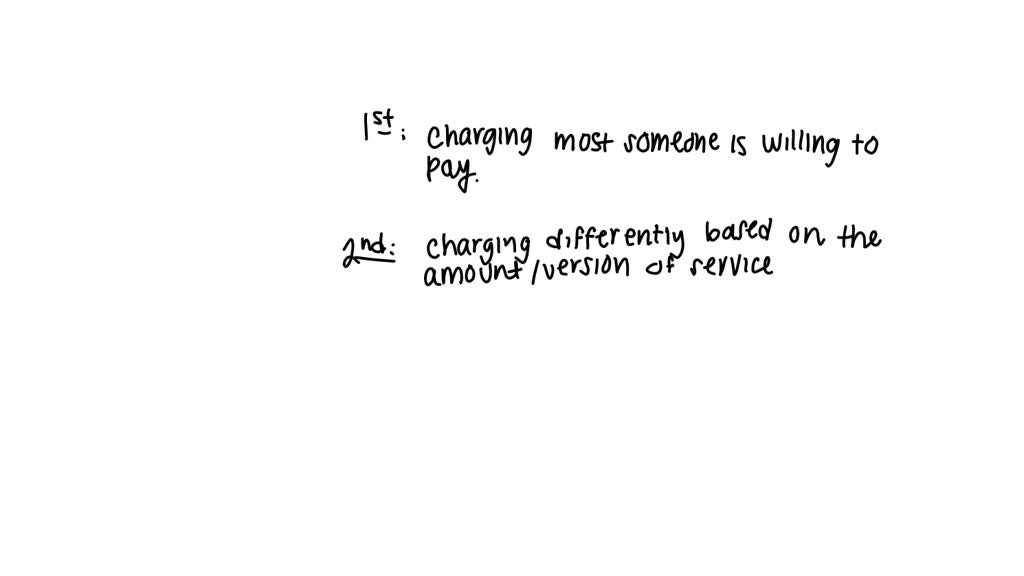 1st: charging most someone is willing to
pay.
2nd: charging differently based on the
amount/version of service